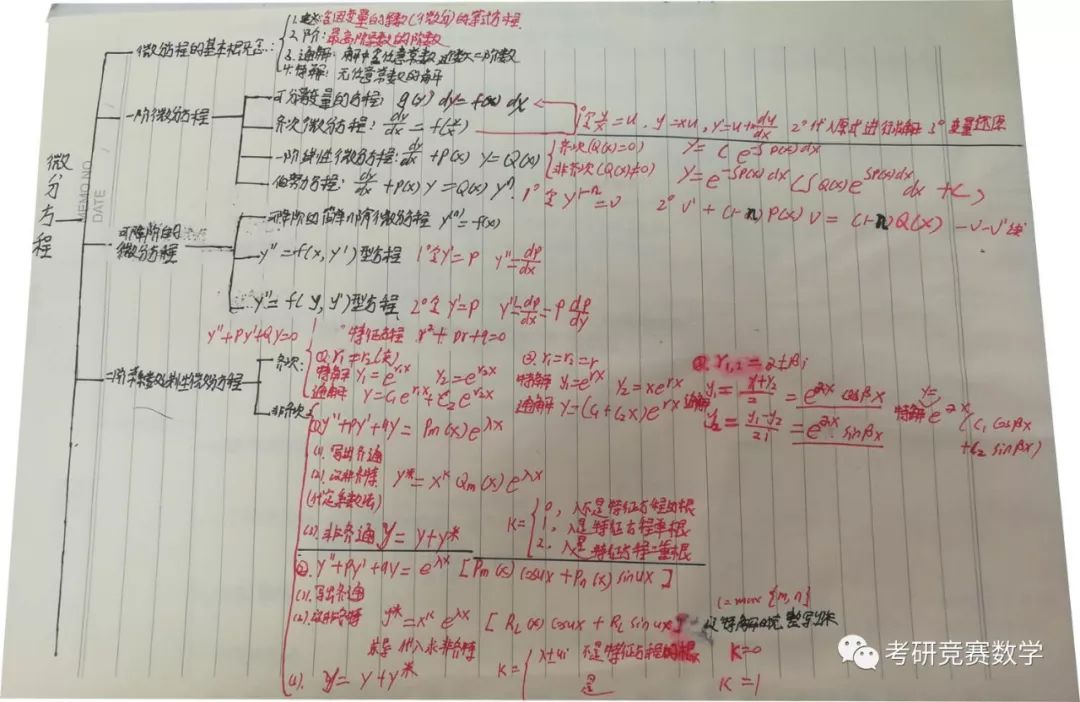 微分方程
MEMO NO.
DATE
微分方程的基本概念:
1. 概念:含因变量的导数(微分)的等式方程
2. 阶:最高阶导数的阶数
3. 通解:解中含任意常数,个数=阶数
4. 特解:无任意常数的解
一阶微分方程
可分离变量的方程: g(y) dy = f(x) dx
齐次微分方程: dy/dx = f(y/x)
1° 令 y/x = u, y = xu, y' = u + x du/dx 2° 代入原式进行求解 3° 变量还原
一阶线性微分方程: dy/dx + P(x) y = Q(x)
齐次(Q(x)=0) y = C e^{-∫P(x)dx}
非齐次(Q(x)≠0) y = e^{-∫P(x)dx} (∫Q(x)e^{∫P(x)dx} dx + C)
伯努力方程: dy/dx + P(x) y = Q(x) y^n. 1° 令 y^{1-n} = v 2° v' + (1-n) P(x) v = (1-n) Q(x)
可降阶的微分方程
可降阶的简单n阶微分方程 y^{(n)} = f(x)
y'' = f(x, y') 型方程 1° 令 y' = p y'' = dp/dx
y'' = f(y, y') 型方程 2° 令 y' = p y'' = dp/dx = p dp/dy
y''+Py'+Qy=0
二阶常系数线性微分方程
齐次:
特征方程 r²+pr+q=0
①. r₁≠r₂(实)
特解 y₁=e^{r₁x} y₂=e^{r₂x}
通解 y=C₁e^{r₁x}+C₂e^{r₂x}
②. r₁=r₂=r
特解 y₁=e^{rx} y₂=xe^{rx}
通解 y=(C₁+C₂x)e^{rx}
②. r₁,₂ = α±βi
y₁ = (y₁+y₂)/2 = e^{αx} cosβx
y₂ = (y₁-y₂)/2i = e^{αx} sinβx
通解
特解 y= e^{αx} (C₁ cosβx + C₂ sinβx)
非齐次
①y''+Py'+qy = Pm(x)e^{λx}
(1). 写出齐通
(2). 设非齐特 y* = x^k Qm(x) e^{λx}
(待定系数法)
(3). 非齐通 y = y+y*
K=
0, λ不是特征方程的根
1, λ是特征方程单根
2, λ是特征方程二重根
②. y''+Py'+qy = e^{λx} [Pm(x) cosωx + Pn(x) sinωx]
(1). 写出齐通
(2). 设非齐特 y* = x^k e^{λx} [R_L(x) cosωx + R_L sinωx] L=max{m,n}
求导 代入求非齐特
K=
λ±ωi 不是特征方程的根 K=0
是 K=1
(4). y = y+y*
考研竞赛数学